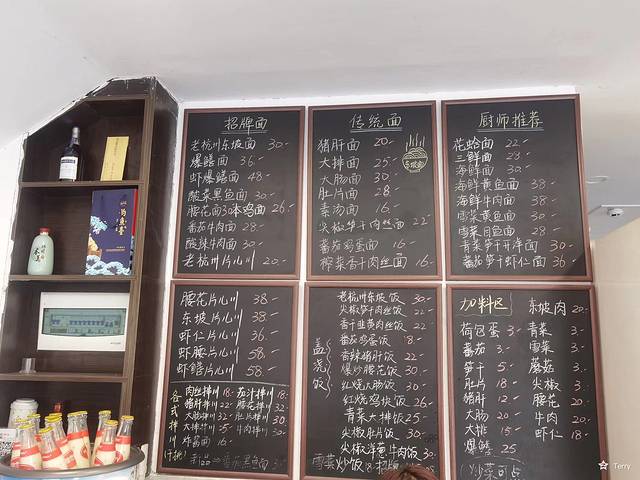 招牌面
老杭州东坡面 30-
爆鳝面 36-
虾爆鳝面 48-
酸菜黑鱼面 30-
腰花面30 本鸡面 26-
番茄牛肉面 28-
酸辣牛肉面 30-
老杭州片儿川 20-
传统面
猪肝面 20-
大排面 25-
大肠面 30-
肚片面 28-
素汤面 16-
尖椒笋干肉丝面 22-
番茄鸡蛋面 16-
榨菜香干肉丝面 16-
厨师推荐
花蛤面 22-
三鲜面 28-
海鲜面 30-
海鲜黄鱼面 38-
海鲜牛肉面 38-
雪菜黄鱼面 30-
雪菜目鱼面 28-
青菜笋干开洋面 30-
番茄笋干虾仁面 36-
腰花片儿川 38-
东坡片儿川 38-
虾仁片儿川 36-
虾腰片儿川 58-
虾鳝片儿川 58-
各式拌川
肉丝拌川 18- 茄汁拌川 18-
猪肝拌川 22- 腰花拌川 32-
大肠拌川 32- 肚片拌川 30-
大排拌川 25- 牛肉拌川 30-
炸酱面 16-
番茄黑鱼面
盖浇饭
老杭州东坡饭 30-
尖椒笋干肉丝饭 22-
香干韭黄肉丝饭 22-
番茄鸡蛋饭 18-
香辣猪肝饭 22-
爆炒腰花饭 30-
红烧大肠饭 30-
红烧鸡块饭 26-
青菜大排饭 25-
尖椒肚片饭 30-
尖椒洋葱牛肉饭 30-
雪菜炒饭 18-
加料区
荷包蛋 3-
番茄 3-
笋干 5-
肚片 18-
猪肝 12-
大肠 20-
大排 15-
爆鳝 25
东坡肉 20-
青菜 3-
雪菜 3-
蘑菇 3-
尖椒 3-
腰花 20-
牛肉 20-
虾仁 18-
Terry